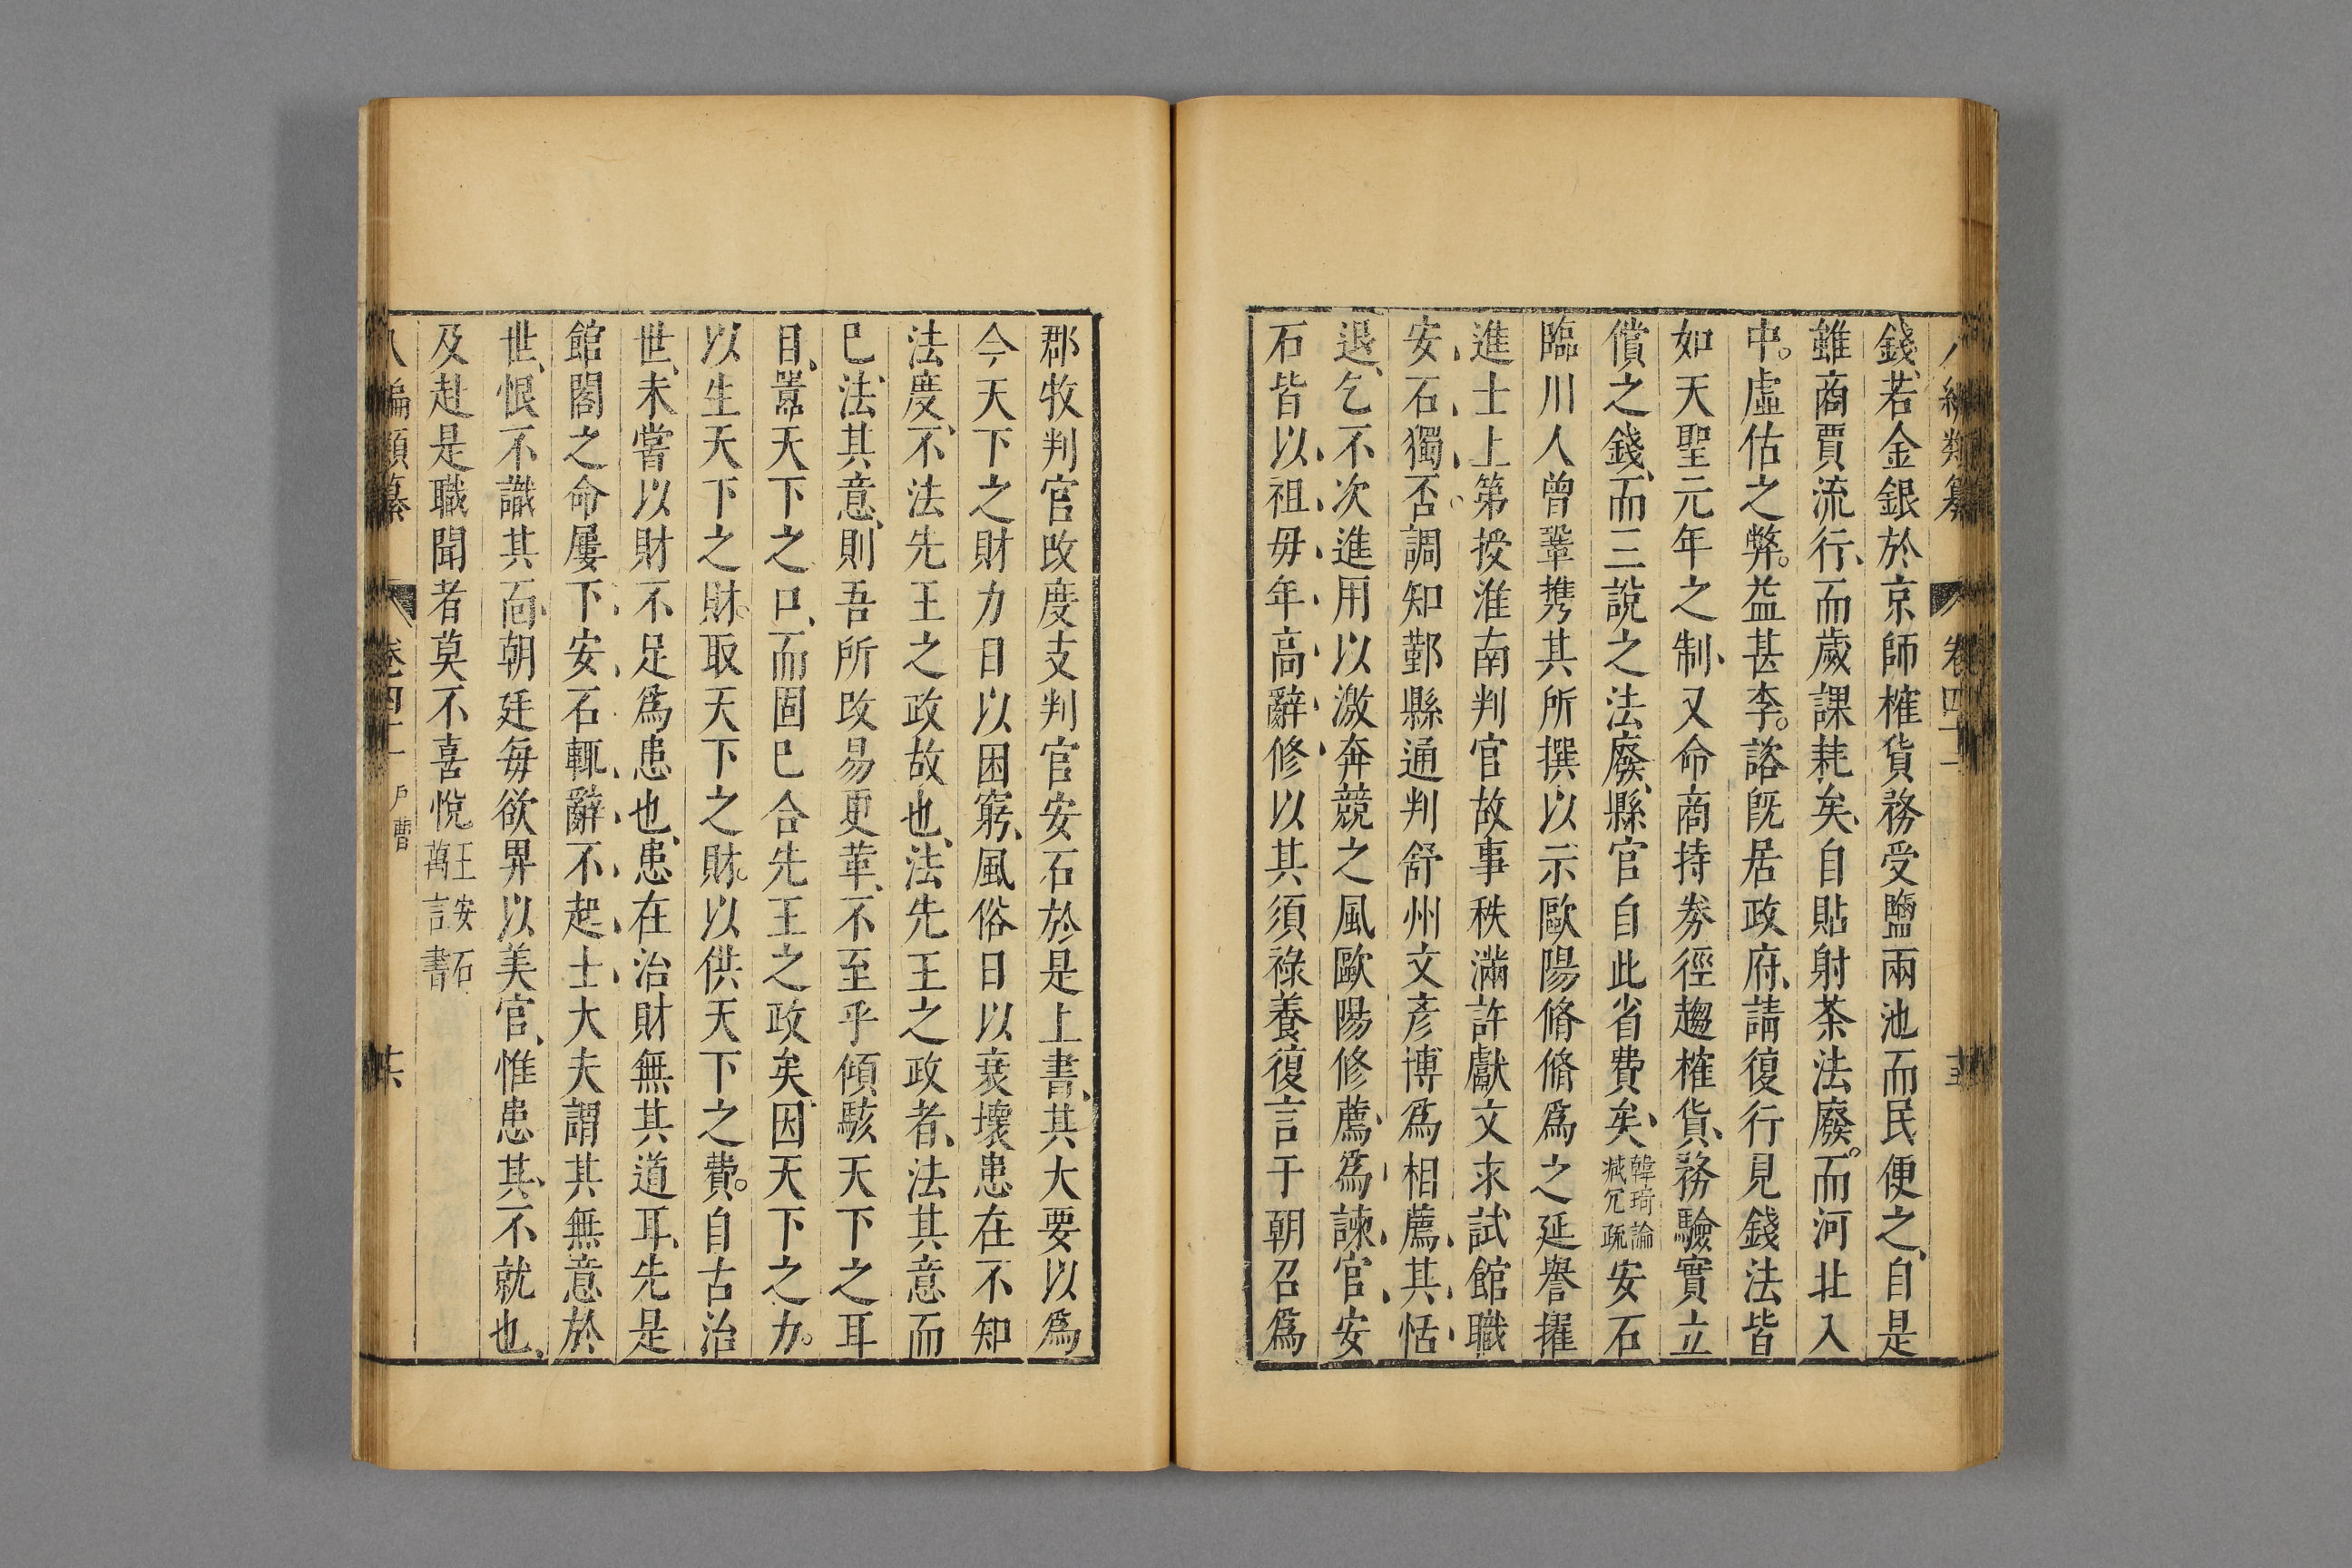 八編類纂 卷四十二 十五
錢、若金銀於京師榷貨務受鹽兩池而民便之、自是
雖商賈流行、而歲課耗矣、自貼射茶法廢。而河北入
中。虛估之弊。益甚李。諮既居政府、請復行見錢法皆
如天聖元年之制、又命商持劵徑趨榷貨、務驗實立
償之錢、而三說之法廢、縣官自此省費矣、韓琦論減冗疏安石
臨川人曾鞏携其所撰以示歐陽脩脩爲之延譽擢
進士上第授淮南判官故事秩滿許獻文求試館職
安、石、獨、否。調知鄞縣通判舒州文彥博爲相薦、其、恬、
退、乞不次進用以激奔競之風歐陽修薦、爲、諫、官、安
石皆以、祖、毋、年、高、辭、修、以其須祿養復言于朝召爲
郡牧判官改度支判官安石於是上書、其大要以爲
今天下之財力日以困窮、風俗日以衰壞患在不知
法度、不法先王之政故也、法先王之政者、法其意而
巳、法其意、則吾所改易更革、不至乎傾駭天下之耳
目、囂天下之口、而固巳合先王之政矣、因天下之力。
以生天下之財。取天下之財。以供天下之費。自古治
世、未嘗以財不足爲患也、患在治財無其道耳、先是
館閣之命屢下、安、石、輒、辭、不、起、士、大夫謂其無意於
世、恨不識其面、朝廷每欲畀以美官、惟患其、不就也、
及赴是職聞者莫不喜悅。王安石萬言書
八編類纂 卷四十二 戶曹 十六